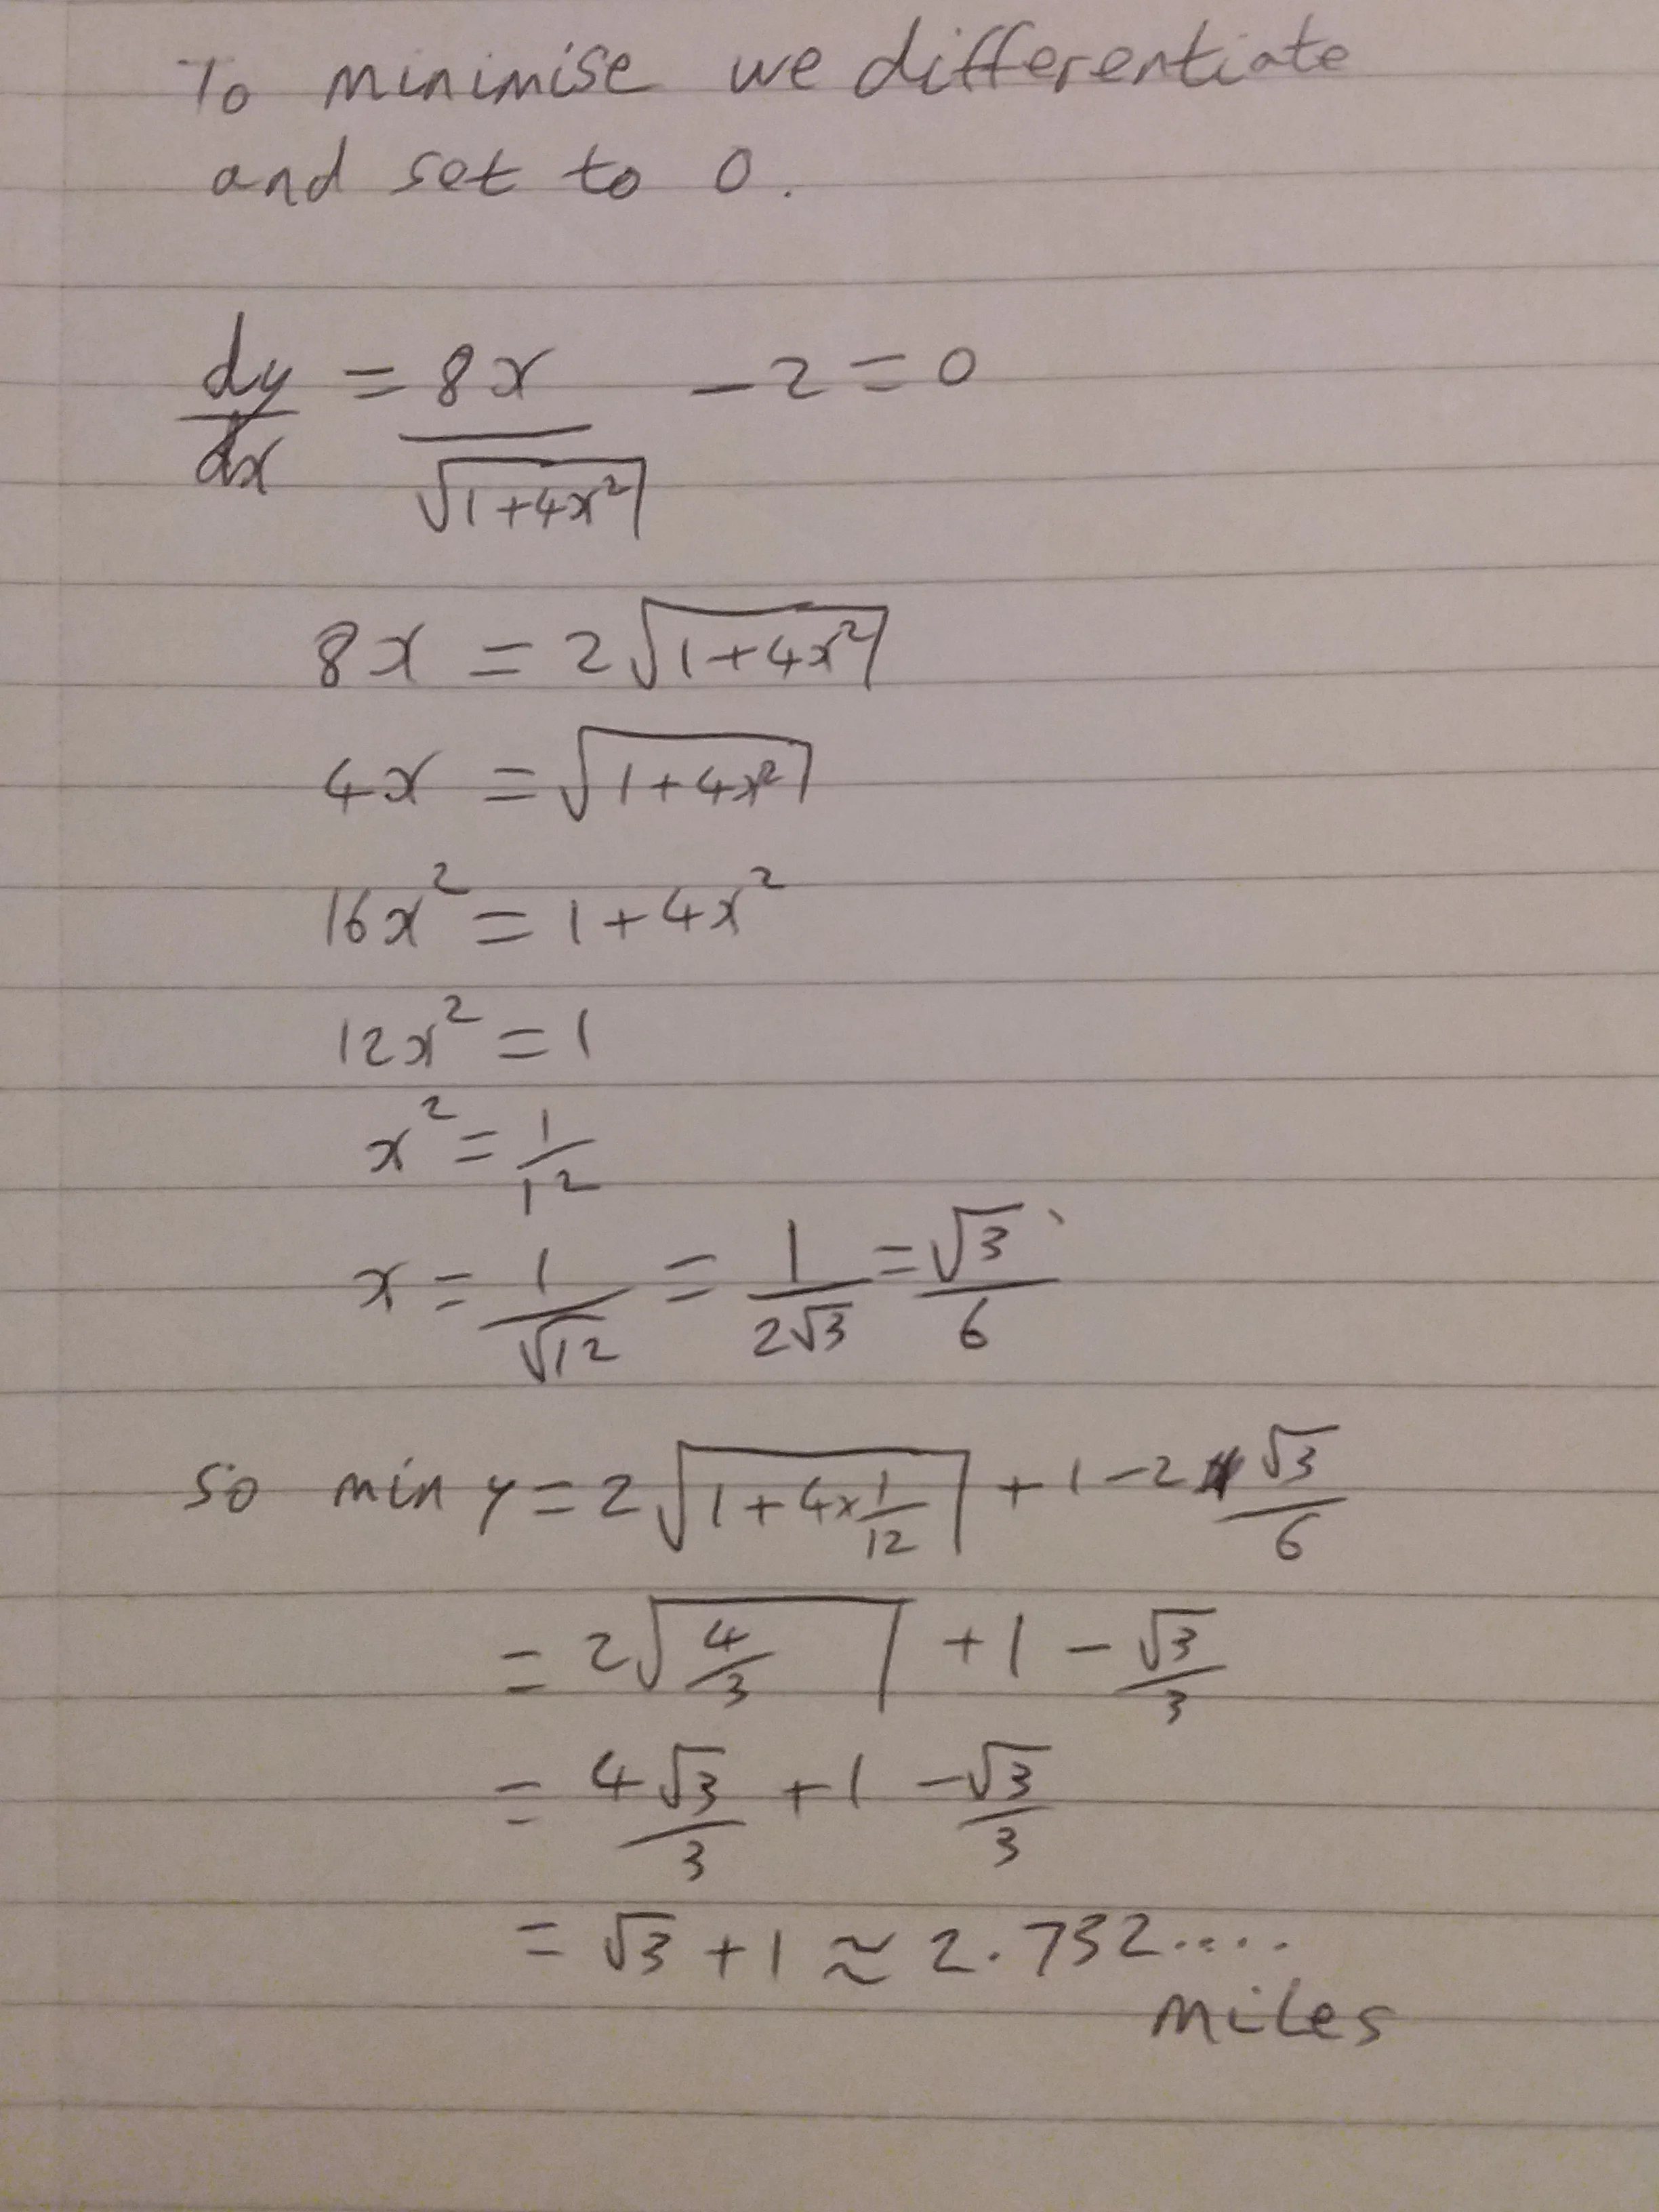 To minimise we differentiate
and set to 0.
dy/dx = 8x/√(1+4x²) − 2 = 0
8x = 2√(1+4x²)
4x = √(1+4x²)
16x² = 1+4x²
12x² = 1
x² = 1/12
x = 1/√12 = 1/(2√3) = √3/6
So min y = 2√(1+4×1/12) + 1 − 2 √3/6
= 2√(4/3) + 1 − √3/3
= 4√3/3 + 1 − √3/3
= √3 + 1 ≈ 2.732....
miles